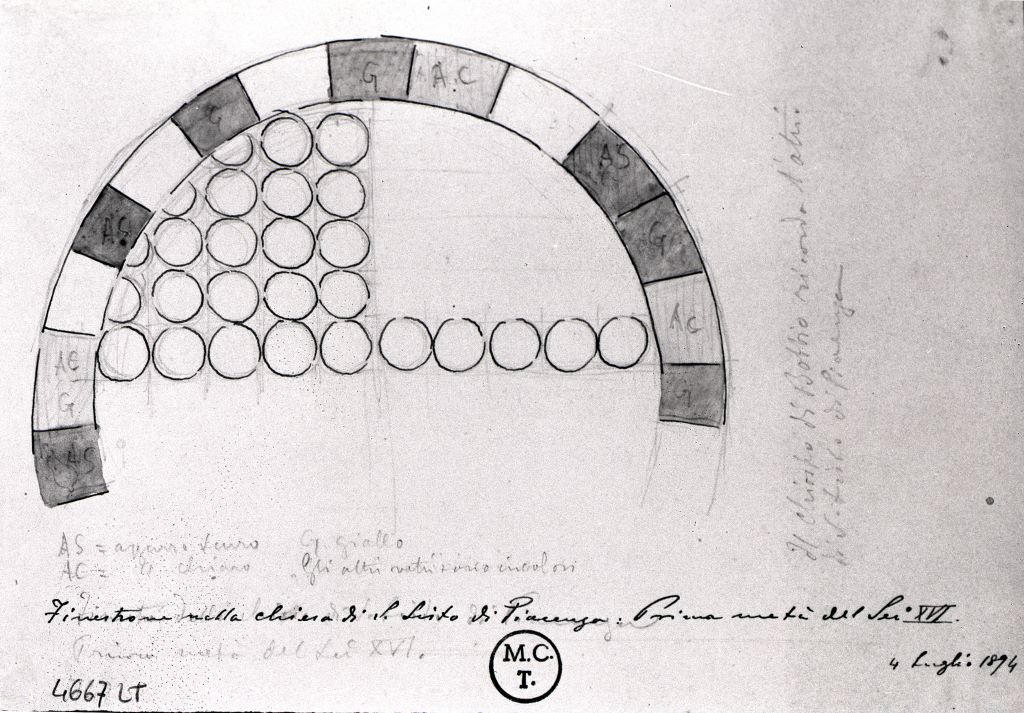 G
A.C
G
AS
AS
G
AC
AC
G
G
AS
AS = azzurro scuro G. giallo
AC = " chiaro Gli altri vetri sono incolori
Finestrone nella chiesa di S. Sisto di Piacenza. Prima metà del Sec. XVI.
Prima metà del Sec XVI.
4 Luglio 1894
4667 LT
M.C.
T.
Il Chiostro di Bobbio ricorda l'altro
di S. Sisto di Piacenza